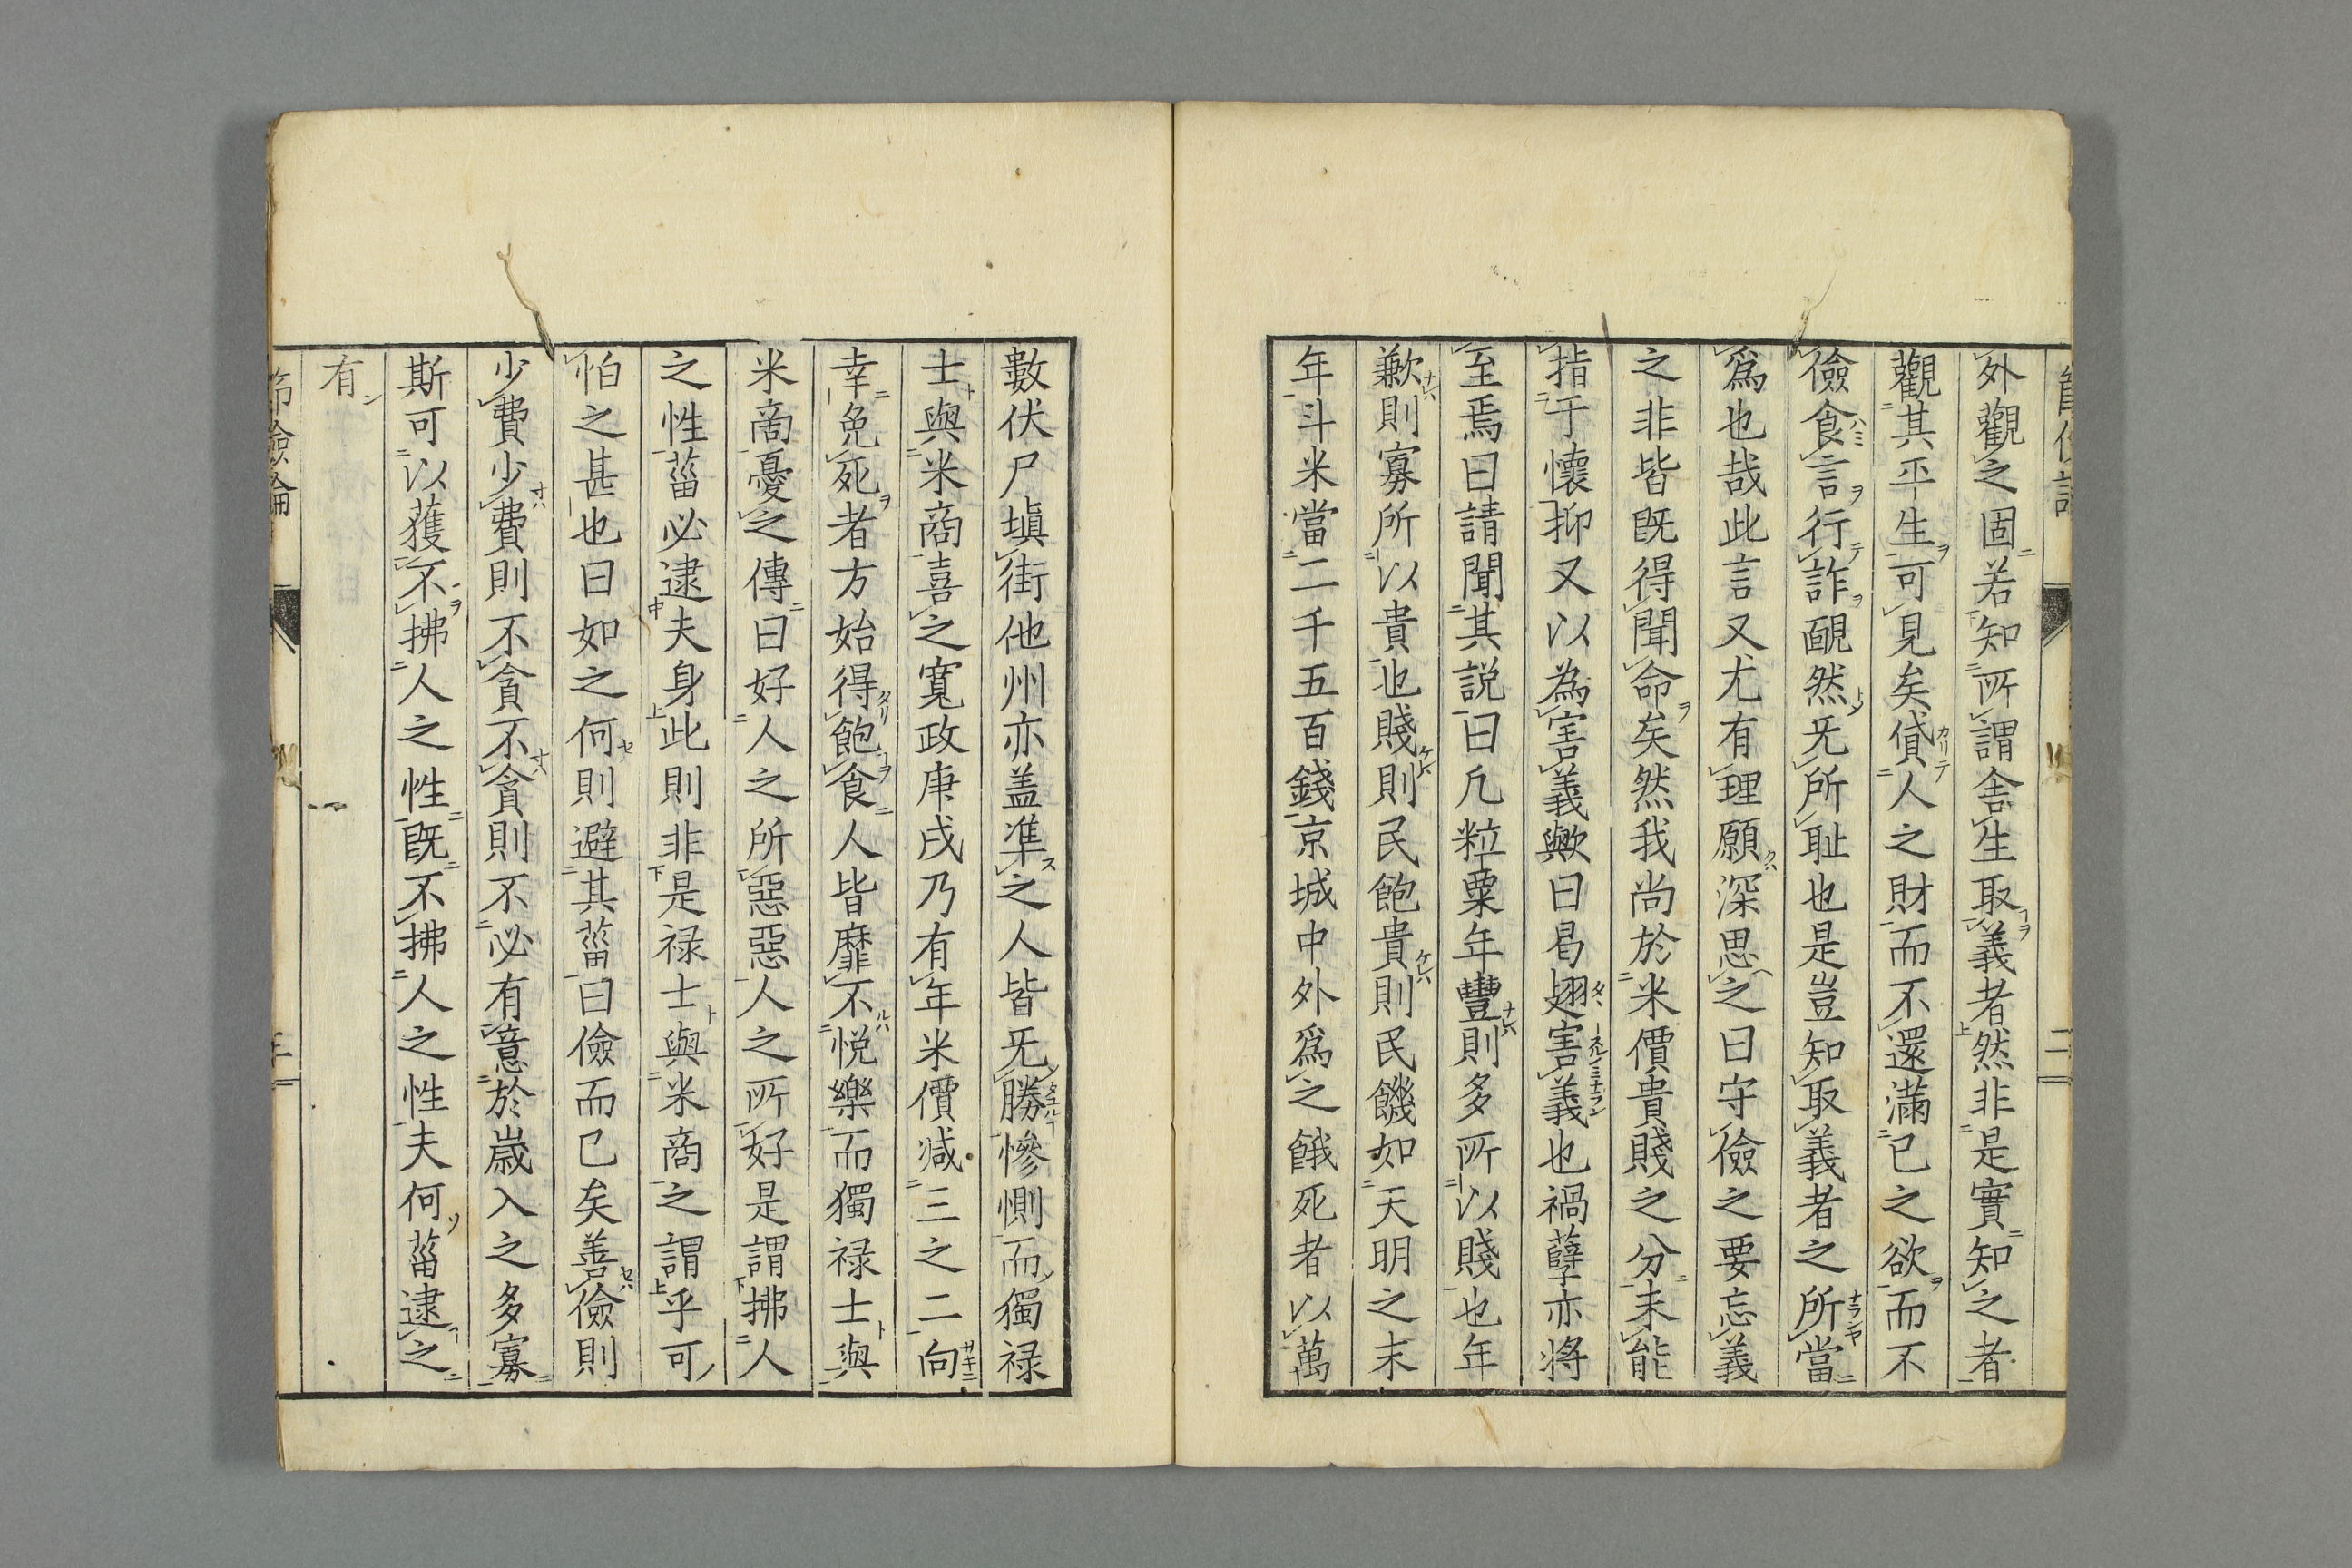 外觀之固若知所謂舎生取義者然非是實知之者
觀其平生可見矣貸人之財而不還滿已之欲而不
儉食言行詐靦然旡所耻也是豈知取義者之所當
爲也哉此言又尤有理願深思之曰守儉之要忘義
之非皆既得聞命矣然我尚於米價貴賤之分未能
指于懷抑又以為害義歟曰曷翅害義也禍孽亦将
至焉曰請聞其説曰凡粒粟年豐則多所以賤也年
歉則寡所以貴也賤則民飽貴則民饑如天明之末
年斗米當二千五百錢京城中外爲之餓死者以萬
數伏尸塡街他州亦盖準之人皆旡勝慘惻而獨禄
士與米商喜之寬政庚戌乃有年米價减三之二向
幸免死者方始得飽食人皆靡不悦樂而獨禄士與
米啇憂之傳曰好人之所惡惡人之所好是謂拂人
之性菑必逮夫身此則非是禄士與米商之謂乎可
怕之甚也曰如之何則避其菑曰儉而已矣善儉則
少費少費則不貪不貪則不必有意於歲入之多寡
斯可以獲不拂人之性既不拂人之性夫何菑逮之
有
節儉論